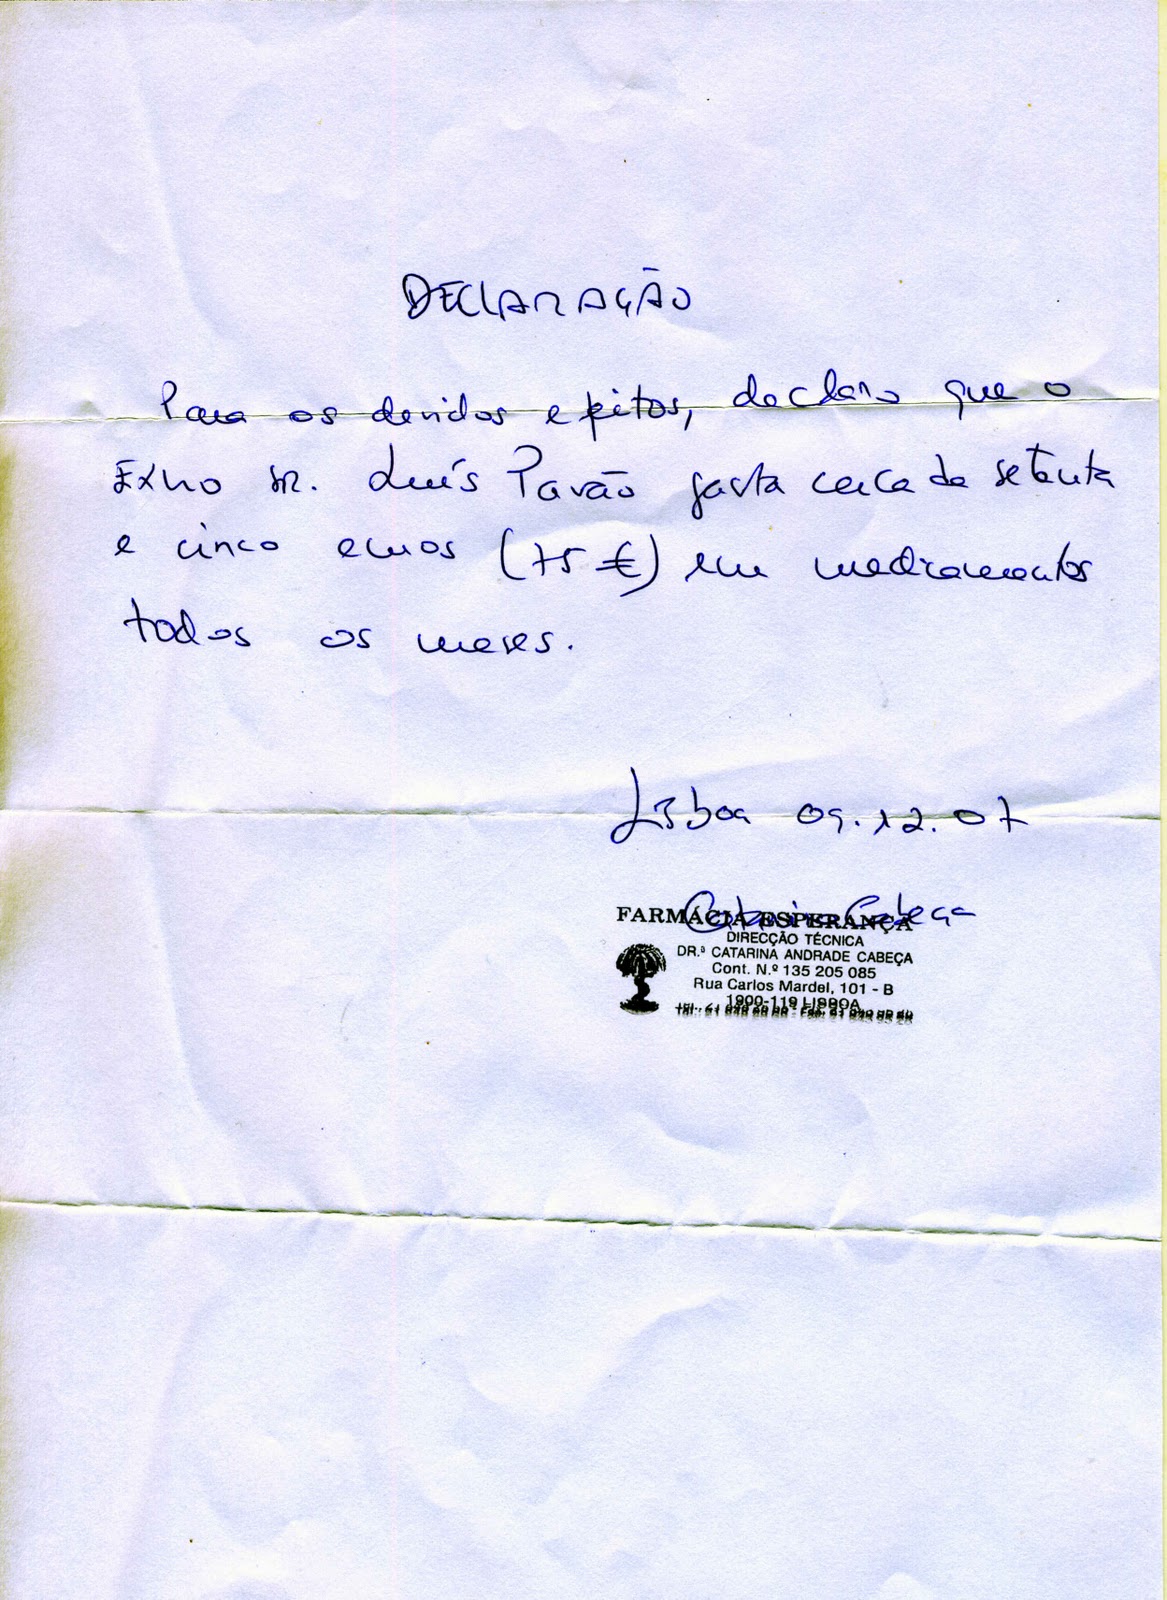 DECLARAÇÃO
Para os devidos efeitos, declaro que o
Exmo Sr. Luís Pavão gasta cerca de setenta
e cinco euros (75 €) em medicamentos
todos os meses.
Lisboa 09.12.07
Catarina Cabeça
FARMÁCIA ESPERANÇA
DIRECÇÃO TÉCNICA
DR.ª CATARINA ANDRADE CABEÇA
Cont. N.º 135 205 085
Rua Carlos Mardel, 101 - B
1900-119 LISBOA